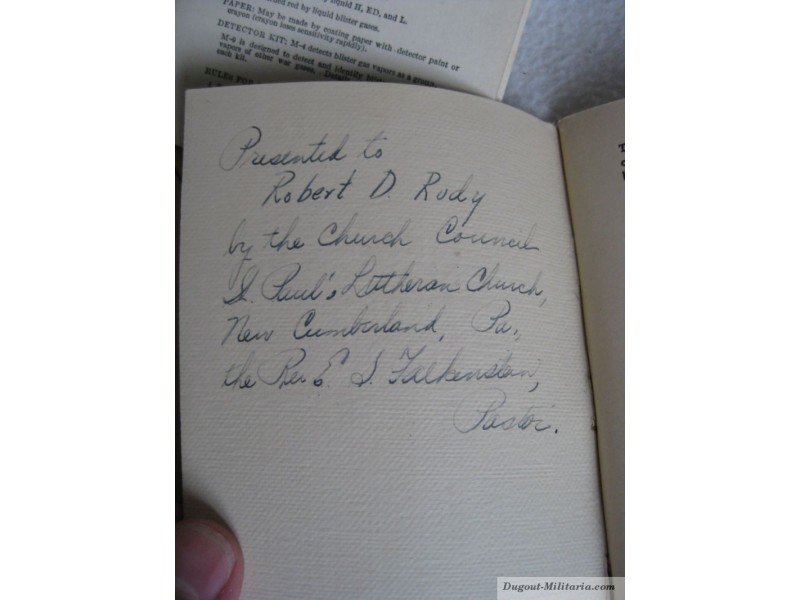 by liquid H, ED, and L.
red by liquid blister gases.
PAPER: May be made by coating paper with detector paint or
crayon (crayon loses sensitivity rapidly).
DETECTOR KIT: M-4 detects blister gas vapors as a group.
M-6 is designed to detect and identify
vapors of other war gases.
each kit.
RULES FOR
Presented to
Robert D. Rudy
by the Church Council
St. Paul's Lutheran Church,
New Cumberland, Pa.,
the Rev. E. S. Falkenstein,
Pastor.
Dugout-Militaria.com